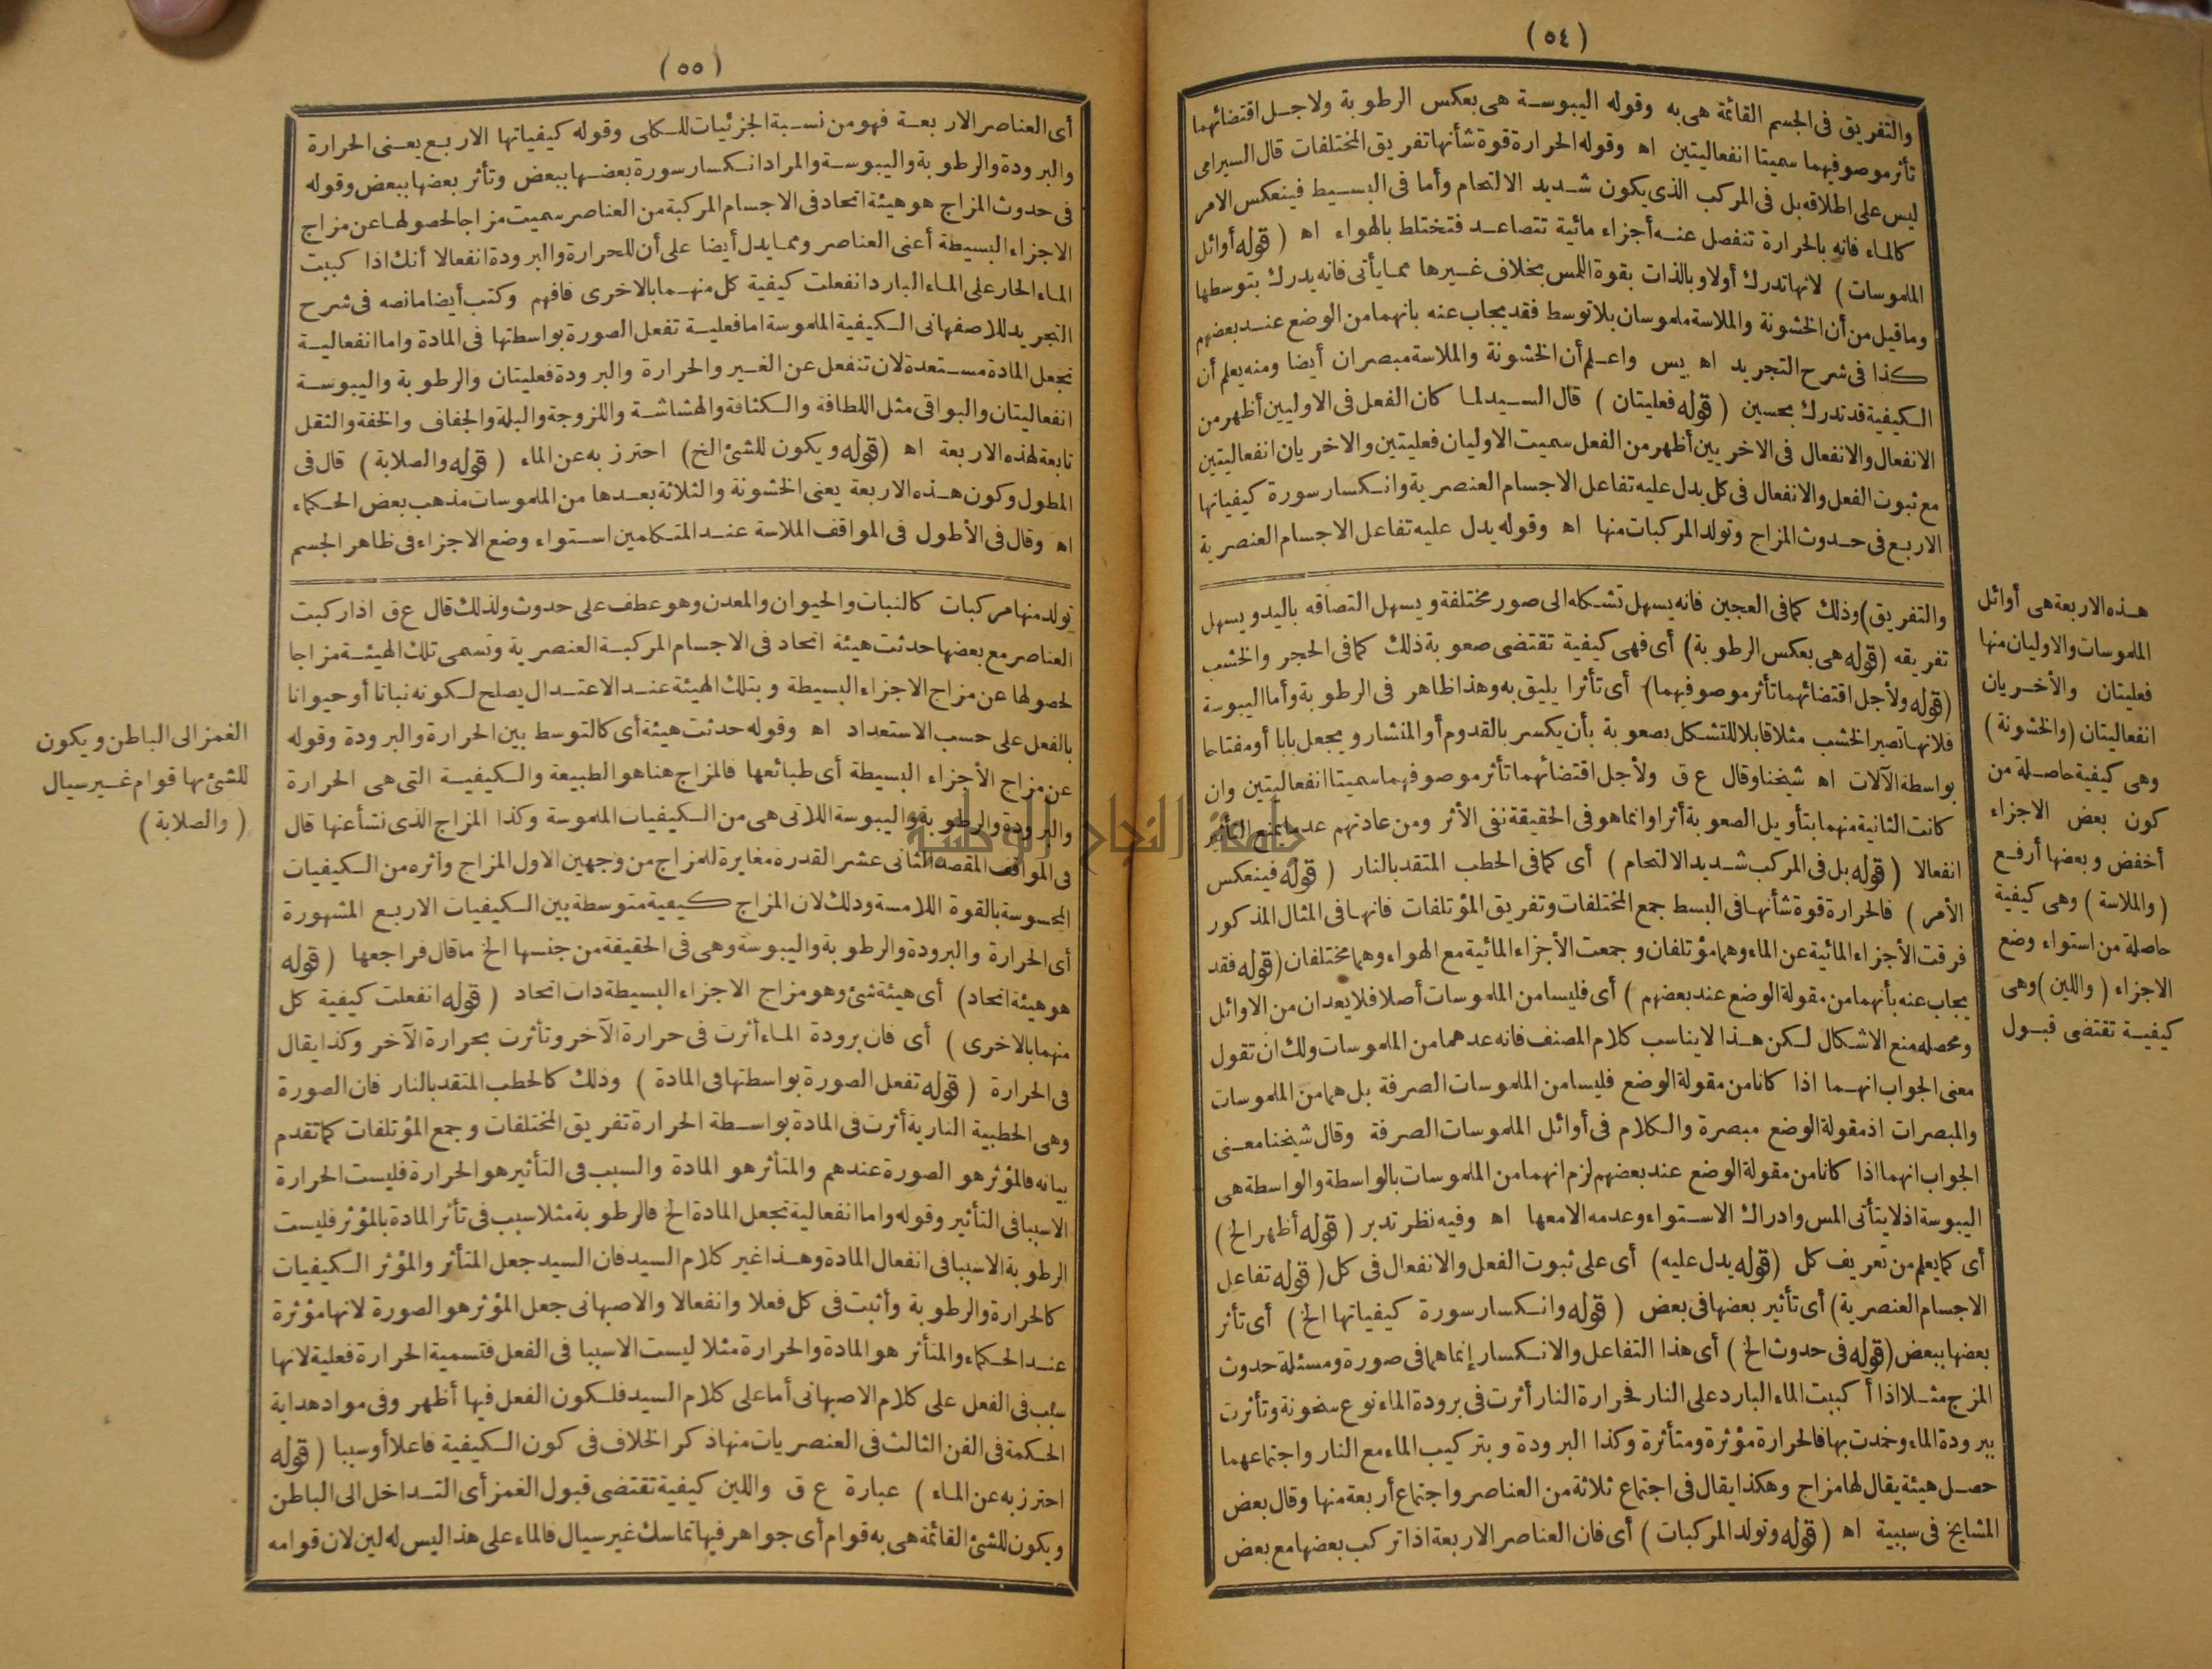 (٥٤)
والتفريق فى الجسم القائمة هى به وقوله اليبوسة هى بعكس الرطوبة ولاجل اقتضائهما
تأثر موصوفيهما سميتا انفعاليتين اه وقوله الحرارة قوة شأنها تفريق المختلفات قال السيرامى
ليس على اطلاقه بل فى المركب الذى يكون شديد الالتحام وأما فى البسيط فينعكس الامر
كالماء فانه بالحرارة تنفصل عنه أجزاء مائية تتصاعد فتختلط بالهواء اه (قوله أوائل
الملموسات) لانها تدرك أولا وبالذات بقوة اللمس بخلاف غيرها مما يأتى فانه يدرك بتوسطها
وما قيل من أن الخشونة والملاسة ملموسان بلا توسط فقد يجاب عنه بانهما من الوضع عند بعضهم
كذا فى شرح التجريد اه يس واعلم أن الخشونة والملاسة مبصران أيضا ومنه يعلم أن
الكيفية قد تدرك بحسين (قوله فعليتان) قال السيد لما كان الفعل فى الاوليين أظهر من
الانفعال والانفعال فى الاخريين أظهر من الفعل سميت الاوليان فعليتين والاخريان انفعاليتين
مع ثبوت الفعل والانفعال فى كل يدل عليه تفاعل الاجسام العنصرية وانكسار سورة كيفياتها
الاربع فى حدوث المزاج وتولد المركبات منها اه وقوله يدل عليه تفاعل الاجسام العنصرية
والتفريق) وذلك كما فى العجين فانه يسهل تشكله الى صور مختلفة ويسهل التصاقه باليد ويسهل
تفريقه (قوله هى بعكس الرطوبة) أى فهى كيفية تقتضى صعوبة ذلك كما فى الحجر والخشب
(قوله ولأجل اقتضائهما تأثر موصوفيهما) أى تأثرا يليق به وهذا ظاهر فى الرطوبة وأما اليبوسة
فلانها تصير الخشب مثلا قابلا للتشكل بصعوبة بأن يكسر بالقدوم أو المنشار ويجعل بابا أو مفتاحا
بواسطة الآلات اه شيخنا وقال ع ق ولأجل اقتضائهما تأثر موصوفهما سميتا انفعاليتين وان
كانت الثانية منهما بتأويل الصعوبة أثرا وانما هو فى الحقيقة نفى الأثر ومن عادتهم عد مانع التأثر
انفعالا (قوله بل فى المركب شديد الالتحام) أى كما فى الحطب المتقد بالنار (قوله فينعكس
الأمر) فالحرارة قوة شأنها فى البسط جمع المختلفات وتفريق المؤتلفات فانها فى المثال المذكور
فرقت الأجزاء المائية عن الماء وهما مؤتلفان وجمعت الأجزاء المائية مع الهواء وهما مختلفان (قوله فقد
يجاب عنه بأنهما من مقولة الوضع عند بعضهم) أى فليسا من الملموسات أصلا فلا يعدان من الاوائل
ومحصله منع الاشكال لكن هذا لا يناسب كلام المصنف فانه عدهما من الملموسات ولك ان تقول
معنى الجواب انهما اذا كانا من مقولة الوضع فليسا من الملموسات الصرفة بل هما من الملموسات
والمبصرات اذ مقولة الوضع مبصرة والكلام فى أوائل الملموسات الصرفة وقال شيخنا معنى
الجواب انهما اذا كانا من مقولة الوضع عند بعضهم لزم انهما من الملموسات بالواسطة والواسطة هى
اليبوسة اذ لا يتأتى المس وادراك الاستواء وعدمه الا معها اه وفيه نظر تدبر (قوله أظهر الخ)
أى كما يعلم من تعريف كل (قوله يدل عليه) أى على ثبوت الفعل والانفعال فى كل (قوله تفاعل
الاجسام العنصرية) أى تأثير بعضها فى بعض (قوله وانكسار سورة كيفياتها الخ) أى تأثر
بعضها ببعض (قوله فى حدوث الخ) أى هذا التفاعل والانكسار إنما هما فى صورة ومسئلة حدوث
المزج مثلا اذا أكببت الماء البارد على النار فحرارة النار أثرت فى برودة الماء نوع سخونة وتأثرت
ببرودة الماء وخمدت بها فالحرارة مؤثرة ومتأثرة وكذا البرودة وبتركيب الماء مع النار واجتماعهما
حصل هيئة يقال لها مزاج وهكذا يقال فى اجتماع ثلاثة من العناصر واجتماع أربعة منها وقال بعض
المشايخ فى سببية اه (قوله وتولد المركبات) أى فان العناصر الاربعة اذا تركب بعضها مع بعض
هذه الاربعة هى أوائل
الملموسات والاوليان منها
فعليتان والأخريان
انفعاليتان (والخشونة)
وهى كيفية حاصلة من
كون بعض الاجزاء
أخفض وبعضها أرفع
(والملاسة) وهى كيفية
حاصلة من استواء وضع
الاجزاء (واللين) وهى
كيفية تقتضى قبول
(٥٥)
أى العناصر الاربعة فهو من نسبة الجزئيات للكلى وقوله كيفياتها الاربع يعنى الحرارة
والبرودة والرطوبة واليبوسة والمراد انكسار سورة بعضها ببعض وتأثر بعضها ببعض وقوله
فى حدوث المزاج هو هيئة اتحاد فى الاجسام المركبة من العناصر سميت مزاجا لحصولها عن مزاج
الاجزاء البسيطة أعنى العناصر ومما يدل أيضا على أن للحرارة والبرودة انفعالا أنك اذا كببت
الماء الحار على الماء البارد انفعلت كيفية كل منهما بالاخرى فافهم وكتب أيضا مانصه فى شرح
التجريد للاصفهانى الكيفية الملموسة اما فعلية تفعل الصورة بواسطتها فى المادة واما انفعالية
تجعل المادة مستعدة لان تنفعل عن الغير والحرارة والبرودة فعليتان والرطوبة واليبوسة
انفعاليتان والبواقى مثل اللطافة والكثافة والهشاشة واللزوجة والبلة والجفاف والخفة والثقل
تابعة لهذه الاربعة اه (قوله ويكون للشئ الخ) احترز به عن الماء (قوله والصلابة) قال فى
المطول وكون هذه الاربعة يعنى الخشونة والثلاثة بعدها من الملموسات مذهب بعض الحكماء
اه وقال فى الأطول فى المواقف الملاسة عند المتكلمين استواء وضع الاجزاء فى ظاهر الجسم
تولد منها مركبات كالنبات والحيوان والمعدن وهو عطف على حدوث ولذلك قال ع ق اذا ركبت
العناصر مع بعضها حدثت هيئة اتحاد فى الاجسام المركبة العنصرية وتسمى تلك الهيئة مزاجا
لحصولها عن مزاج الاجزاء البسيطة وبتلك الهيئة عند الاعتدال يصلح لكونه نباتا أو حيوانا
بالفعل على حسب الاستعداد اه وقوله حدثت هيئة أى كالتوسط بين الحرارة والبرودة وقوله
عن مزاج الأجزاء البسيطة أى طبائعها فالمزاج هنا هو الطبيعة والكيفية التى هى الحرارة
والبرودة والرطوبة واليبوسة اللاتى هى من الكيفيات الملموسة وكذا المزاج الذى نشأ عنها قال
فى المواقف المقصد الثانى عشر القدرة مغايرة للمزاج من وجهين الاول المزاج وأثره من الكيفيات
المحسوسة بالقوة اللامسة وذلك لان المزاج كيفية متوسطة بين الكيفيات الاربع المشهورة
أى الحرارة والبرودة والرطوبة واليبوسة وهى فى الحقيقة من جنسها الخ ما قال فراجعها (قوله
هو هيئة اتحاد) أى هيئة شئ وهو مزاج الاجزاء البسيطة ذات اتحاد (قوله انفعلت كيفية كل
منهما بالاخرى) أى فان برودة الماء أثرت فى حرارة الآخر وتأثرت بحرارة الآخر وكذا يقال
فى الحرارة (قوله تفعل الصورة بواسطتها فى المادة) وذلك كالحطب المتقد بالنار فان الصورة
وهى الحطبية النارية أثرت فى المادة بواسطة الحرارة تفريق المختلفات وجمع المؤتلفات كما تقدم
بيانه فالمؤثر هو الصورة عندهم والمتأثر هو المادة والسبب فى التأثير هو الحرارة فليست الحرارة
الا سببا فى التأثير وقوله واما انفعالية تجعل المادة الخ فالرطوبة مثلا سبب فى تأثر المادة بالمؤثر فليست
الرطوبة الا سببا فى انفعال المادة وهذا غير كلام السيد فان السيد جعل المتأثر والمؤثر الكيفيات
كالحرارة والرطوبة وأثبت فى كل فعلا وانفعالا والاصبهانى جعل المؤثر هو الصورة لانها مؤثرة
عند الحكماء والمتأثر هو المادة والحرارة مثلا ليست الا سببا فى الفعل فتسمية الحرارة فعلية لانها
سبب فى الفعل على كلام الاصبهانى أما على كلام السيد فلكون الفعل فيها أظهر وفى مواد هداية
الحكمة فى الفن الثالث فى العنصريات منها ذكر الخلاف فى كون الكيفية فاعلا أو سببا (قوله
احترز به عن الماء) عبارة ع ق واللين كيفية تقتضى قبول الغمز أى التداخل الى الباطن
ويكون للشئ القائمة هى به قوام أى جواهر فيها تماسك غير سيال فالماء على هذا ليس له لين لان قوامه
الغمز الى الباطن ويكون
للشئ بها قوام غير سيال
(والصلابة)
جامعة النجاح الوطنية